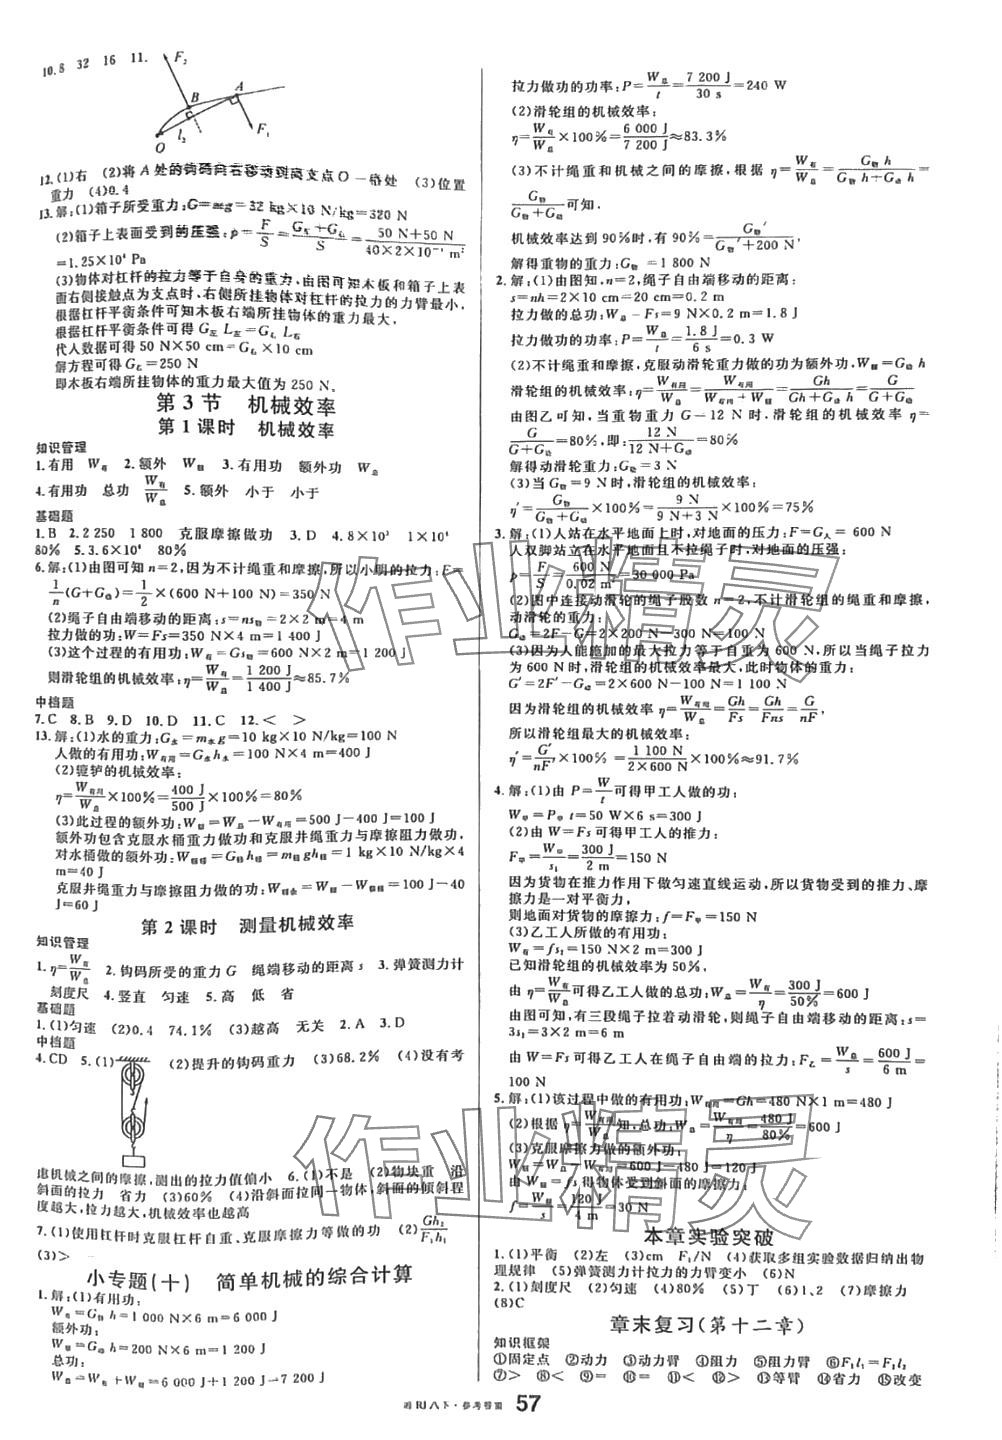 10. 8 32 16 11.
F₂
B
A
l₂
F₁
O
12. (1)右 (2)将 A 处的钩码向右移动到离支点O一格处 (3)位置
重力 (4)0.4
13. 解:(1)箱子所受重力:G=mg=32 kg×10 N/kg=320 N
(2)箱子上表面受到的压强:p=F/S=(G左+G右)/S=(50 N+50 N)/(40×2×10⁻⁴ m²)
=1.25×10⁴ Pa
(3)物体对杠杆的拉力等于自身的重力,由图可知木板和箱子上表
面右侧接触点为支点时,右侧所挂物体对杠杆的拉力的力臂最小,
根据杠杆平衡条件可知木板右端所挂物体的重力最大,
根据杠杆平衡条件可得 G左 L左=G右 L右
代人数据可得 50 N×50 cm=G右×10 cm
解方程可得 G右=250 N
即木板右端所挂物体的重力最大值为 250 N。
第 3 节 机械效率
第 1 课时 机械效率
知识管理
1. 有用 W有 2. 额外 W额 3. 有用功 额外功 W总
4. 有用功 总功 W有/W总 5. 额外 小于 小于
基础题
1. B 2. 2 250 1 800 克服摩擦做功 3. D 4. 8×10³ 1×10⁴
80% 5. 3.6×10⁴ 80%
6. 解:(1)由图可知 n=2,因为不计绳重和摩擦,所以小明的拉力:F=
1/n(G+G动)=1/2×(600 N+100 N)=350 N
(2)绳子自由端移动的距离:s=ns物=2×2 m=4 m
拉力做的功:W=Fs=350 N×4 m=1 400 J
(3)这个过程的有用功:W有=Gs物=600 N×2 m=1 200 J
则滑轮组的机械效率:η=W有/W总=1 200 J/1 400 J≈85.7%
中档题
7. C 8. B 9. D 10. D 11. C 12. < >
13. 解:(1)水的重力:G水=m水g=10 kg×10 N/kg=100 N
人做的有用功:W有用=G水h水=100 N×4 m=400 J
(2)辘轳的机械效率:
η=W有用/W总×100%=400 J/500 J×100%=80%
(3)此过程的额外功:W额=W总-W有用=500 J-400 J=100 J
额外功包含克服水桶重力做功和克服井绳重力与摩擦阻力做功,
对水桶做的额外功:W额桶=G桶h桶=m桶gh桶=1 kg×10 N/kg×4
m=40 J
克服井绳重力与摩擦阻力做的功:W额余=W额-W额桶=100 J-40
J=60 J
第 2 课时 测量机械效率
知识管理
1. η=W有/W总 2. 钩码所受的重力 G 绳端移动的距离 s 3. 弹簧测力计
刻度尺 4. 竖直 匀速 5. 高 低 省
基础题
1. (1)匀速 (2)0.4 74.1% (3)越高 无关 2. A 3. D
中档题
4. CD 5. (1) (2)提升的钩码重力 (3)68.2% (4)没有考
虑机械之间的摩擦,测出的拉力值偏小 6. (1)不是 (2)物块重 沿
斜面的拉力 省力 (3)60% (4)沿斜面拉同一物体,斜面的倾斜程
度越大,拉力越大,机械效率也越高
7. (1)使用杠杆时克服杠杆自重、克服摩擦力等做的功 (2)Gh₂/F₁h₁
(3)>
小专题(十) 简单机械的综合计算
1. 解:(1)有用功:
W有=G物 h=1 000 N×6 m=6 000 J
额外功:
W额=G动 h=200 N×6 m=1 200 J
总功:
W总=W有+W额=6 000 J+1 200 J=7 200 J
拉力做功的功率:P=W总/t=7 200 J/30 s=240 W
(2)滑轮组的机械效率:
η=W有/W总×100%=6 000 J/7 200 J×100%≈83.3%
(3)不计绳重和机械之间的摩擦,根据 η=W有/W总=G物 h/(G物 h+G动 h)=
G物/(G物+G动)可知,
机械效率达到 90%时,有 90%=G物′/(G物′+200 N),
解得重物的重力:G物′=1 800 N
2. 解:(1)由图甲知,n=2,绳子自由端移动的距离:
s=nh=2×10 cm=20 cm=0.2 m
拉力做的总功:W总=Fs=9 N×0.2 m=1.8 J
拉力做功的功率:P=W总/t=1.8 J/6 s=0.3 W
(2)不计绳重和摩擦,克服动滑轮重力做的功为额外功:W额=G动 h
滑轮组的机械效率:η=W有用/W总=W有用/(W有用+W额)=Gh/(Gh+G动 h)=G/(G+G动)
由图乙可知,当重物重力 G=12 N 时,滑轮组的机械效率 η=
G/(G+G动)=80%,即:12 N/(12 N+G动)=80%
解得动滑轮重力:G动=3 N
(3)当 G物=9 N 时,滑轮组的机械效率:
η′=G物/(G物+G动)×100%=9 N/(9 N+3 N)×100%=75%
3. 解:(1)人站在水平地面上时,对地面的压力:F=G人=600 N
人双脚站立在水平地面且不拉绳子时,对地面的压强:
p=F/S=600 N/0.02 m²=30 000 Pa
(2)图中连接动滑轮的绳子股数 n=2,不计滑轮组的绳重和摩擦,
动滑轮的重力:
G动=2F-G=2×600 N-1 100 N=100 N
(3)因为人能施加的最大拉力等于自重为 600 N,所以当绳子拉力
为 600 N 时,滑轮组的机械效率最大,此时物体的重力:
G′=2F′-G动=2×600 N-100 N=1 100 N
因为滑轮组的机械效率 η=W有用/W总=Gh/Fs=Gh/Fns=G/nF,
所以滑轮组最大的机械效率:
η′=G′/nF′×100%=1 100 N/(2×600 N)×100%≈91.7%
4. 解:(1)由 P=W/t可得甲工人做的功:
W甲=P甲t=50 W×6 s=300 J
(2)由 W=Fs 可得甲工人的推力:
F甲=W甲/s=300 J/2 m=150 N
因为货物在推力作用下做匀速直线运动,所以货物受到的推力、摩
擦力是一对平衡力,
则地面对货物的摩擦力:f=F甲=150 N
(3)乙工人所做的有用功:
W有=fs₁=150 N×2 m=300 J
已知滑轮组的机械效率为 50%,
由 η=W有/W总可得乙工人做的总功:W总=W有/η=300 J/50%=600 J
由图可知,有三段绳子拉着动滑轮,则绳子自由端移动的距离:s=
3s₁=3×2 m=6 m
由 W=Fs 可得乙工人在绳子自由端的拉力:F乙=W总/s=600 J/6 m=
100 N
5. 解:(1)该过程中做的有用功:W有用=Gh=480 N×1 m=480 J
(2)根据 η=W有用/W总知,总功:W总=W有用/η=480 J/80%=600 J
(3)克服摩擦力做的额外功:
W额=W总-W有用=600 J-480 J=120 J
由 W额=fs得物体受到斜面的摩擦力:
f=W额/s=120 J/4 m=30 N
本章实验突破
1. (1)平衡 (2)左 (3)cm F₁/N (4)获取多组实验数据归纳出物
理规律 (5)弹簧测力计拉力的力臂变小 (6)N
2. (1)刻度尺 (2)匀速 (4)80% (5)丁 (6)1、2 (7)摩擦力
(8)C
章末复习(第十二章)
知识框架
①固定点 ②动力 ③动力臂 ④阻力 ⑤阻力臂 ⑥F₁l₁=F₂l₂
⑦> ⑧< ⑨= ⑩省力 ⑪费力 ⑫等臂 ⑬等臂 ⑭省力 ⑮改变
湘 RJ 八下·参考答案 57
作业精灵
作业精灵